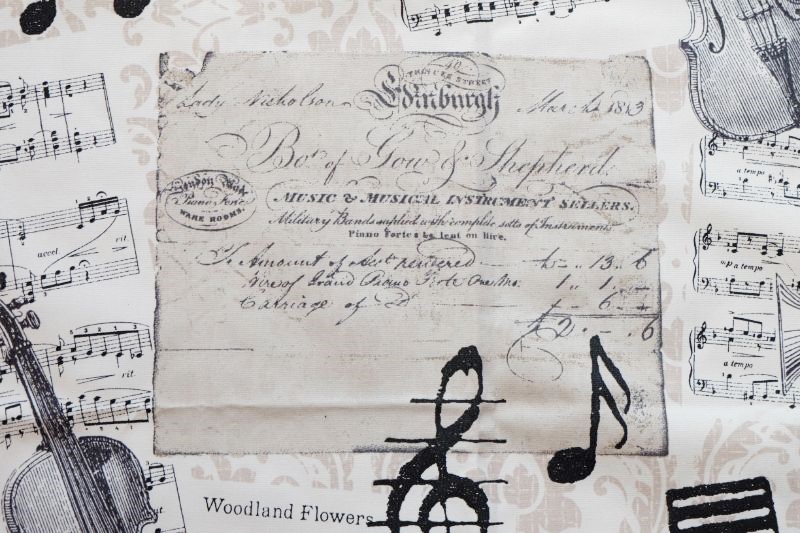 40
PRINCES STREET
Edinburgh
Lady Nicholson March 1813
Bot. of Gow & Shepherd.
London Made
Piano Forte
WARE ROOMS.
MUSIC & MUSICAL INSTRUMENT SELLERS.
Military Bands supplied with complete setts of Instruments
Piano Fortes to lent on hire.
To Amount of Acct rendered 13 .. 6
Hire of Grand Piano Forte One Mo. 1 .. 1
Carriage of Do 6
£ 2 .. - .. 6
a tempo
accel. rit.
a tempo
rit.
a tempo
Woodland Flowers